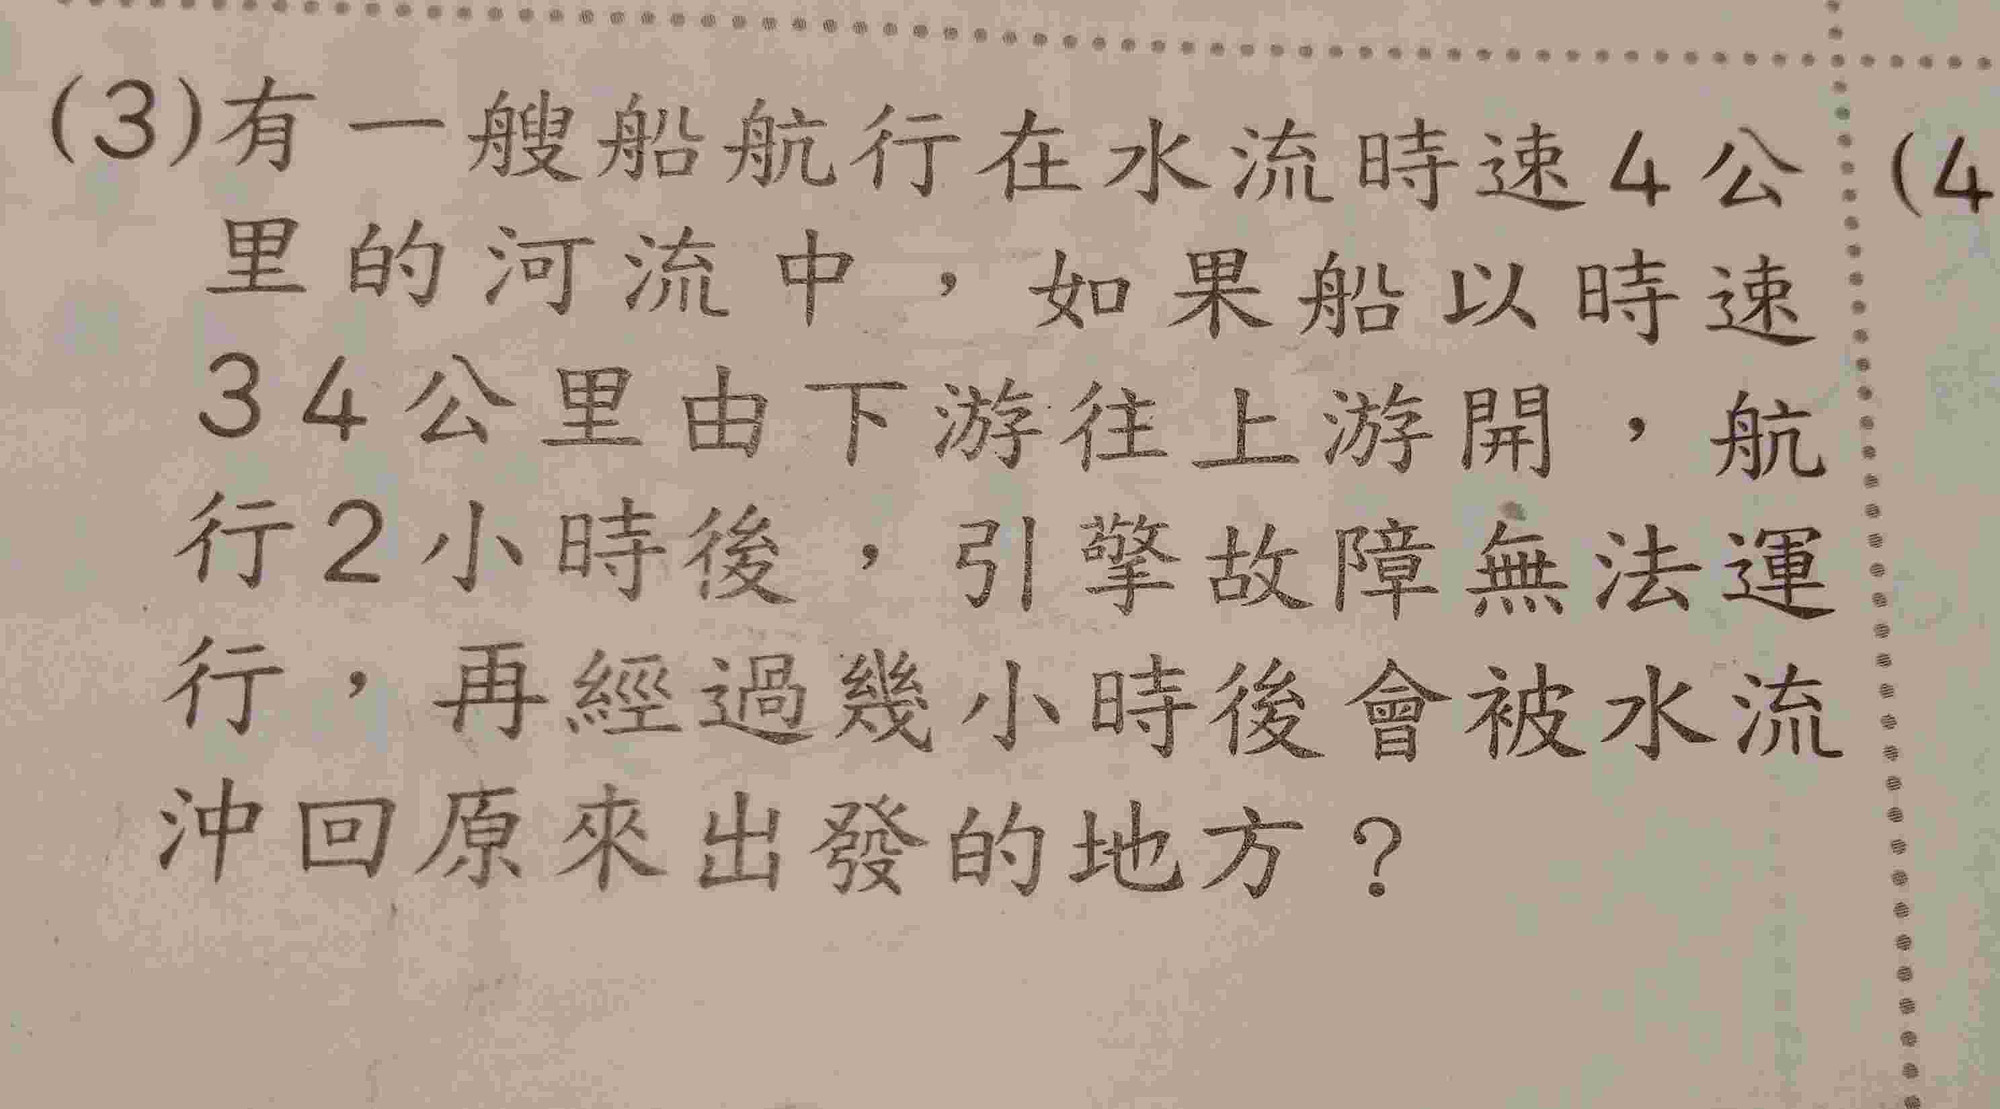 (3)有一艘船航行在水流時速4公
里的河流中，如果船以時速
34公里由下游往上游開，航
行2小時後，引擎故障無法運
行，再經過幾小時後會被水流
沖回原來出發的地方？
(4